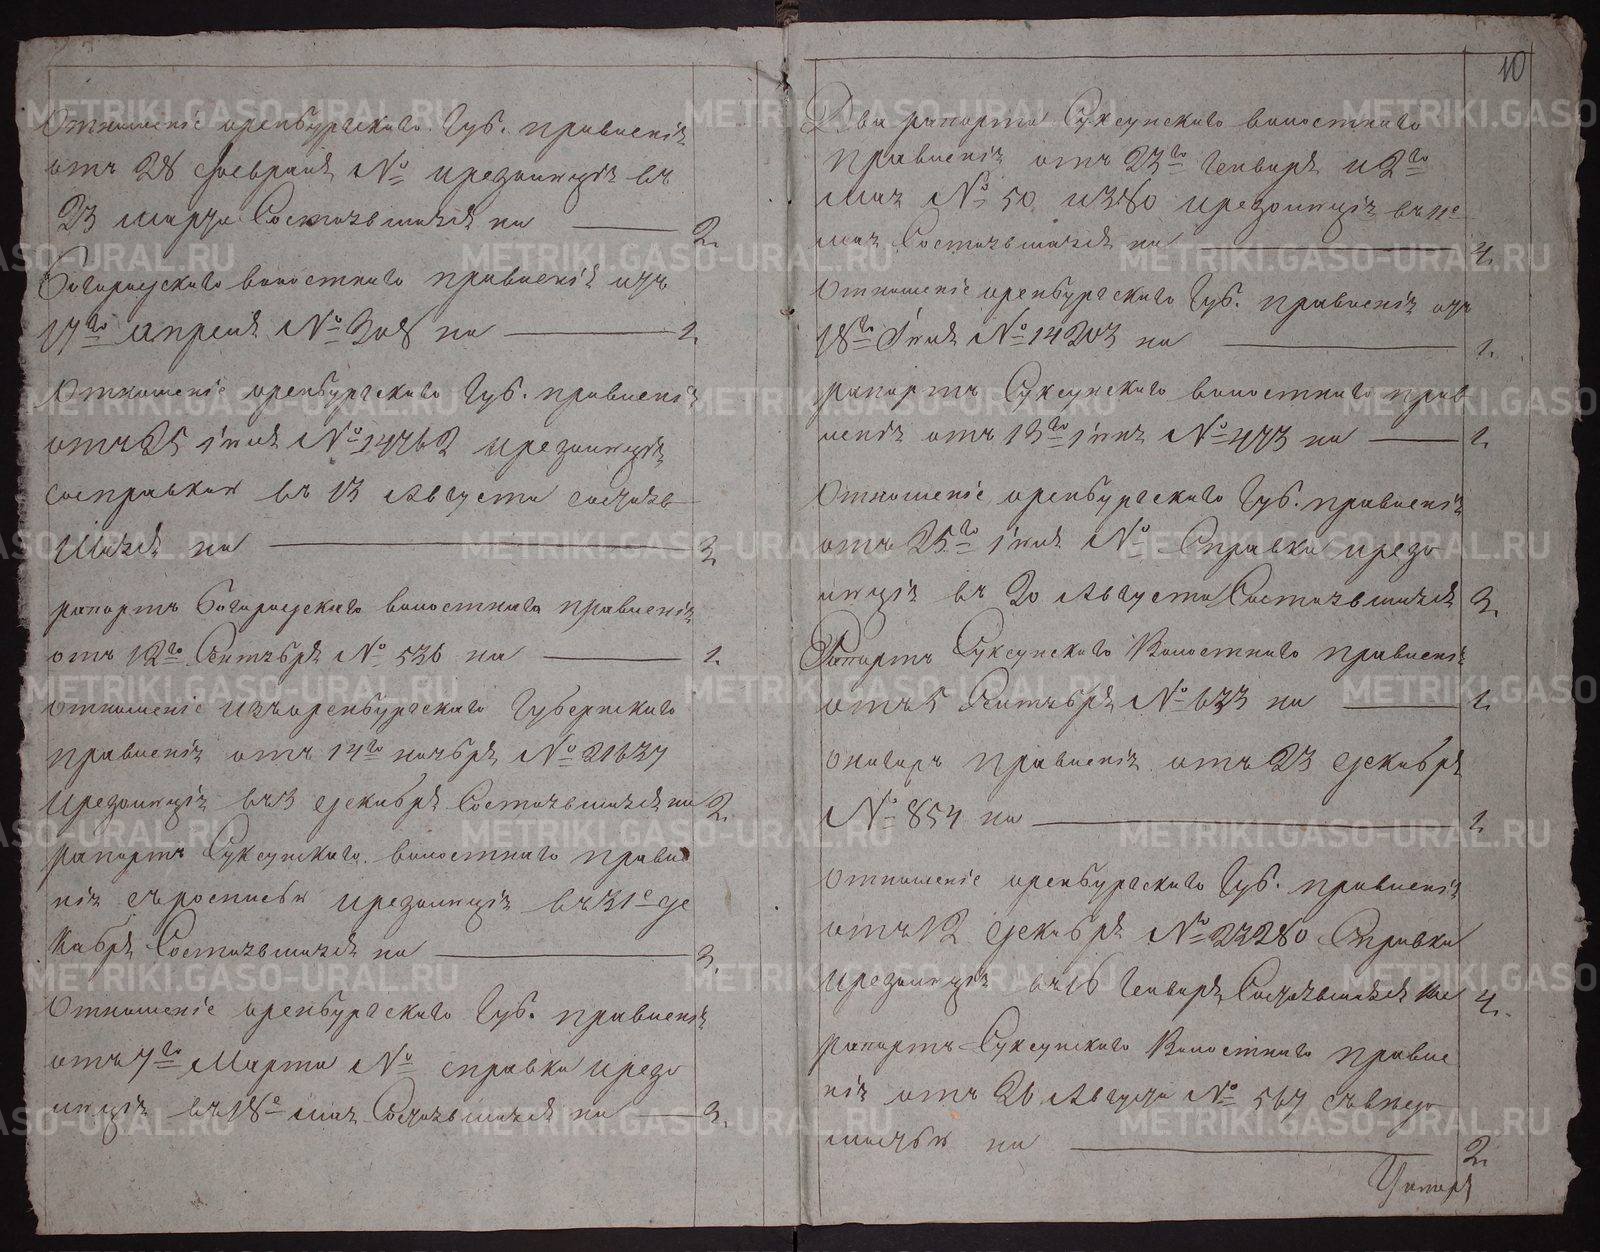 Отношеніе оренбургскаго Губ. правленія
отъ 28 февраля № ирезолюція въ
23 марта Состоявшаяся на 2.
Богородскаго волостнаго правленія изъ
17го апреля № 308 на 1.
Отношеніе оренбургскаго Губ. правленія
отъ 25 іюля № 14762 ирезолюція
сосправкою въ 13 Августа состояв
шаяся на 3.
рапортъ богородскаго волостнаго правленія
отъ 12го Сентября № 536 на 1.
отношеніе изъоренбургскаго Губернскаго
правленія отъ 14го ноября № 21637
ирезолюція въ 3 декабря Состоявшаяся на 2.
рапортъ Суксунскаго волостнаго правле
нія съросписью ирезолюція въ 31е де
кабря Состоявшаяся на 3.
Отношеніе оренбургскаго Губ. правленія
отъ 7го Марта № справка ирезо
люція въ 18е мая Состоявшаяся на 3.
10
Два рапорта Суксунскаго волостнаго
правленія отъ 23го Генваря и 2го
мая № 50 и 380 ирезолюція въ 11е
мая Состоявшаяся на 4.
Отношеніе оренбургскаго Губ. правленія отъ
18го Іюля № 14203 на 1.
рапортъ Суксунскаго волостнаго прав
ленія отъ 13го іюля № 473 на 1.
Отношеніе оренбургскаго Губ. правленія
отъ 25го іюля № Справка ирезо
люція въ 20 Августа Состоявшаяся 3.
Рапортъ Суксунскаго Волостнаго правленія
отъ 5 Сентября № 623 на 1.
онагожъ правленія отъ 23 декабря
№ 854 на 1.
отношеніе оренбургскаго Губ. правленія
отъ 12 декабря № 23280 Справка
ирезолюція въ 16 Генваря Состоявшаяся на 4.
рапортъ Суксунскаго Волостнаго правле
нія отъ 26 Августа № 567 съведо
мостью на 2.
METRIKI.GASO-URAL.RU